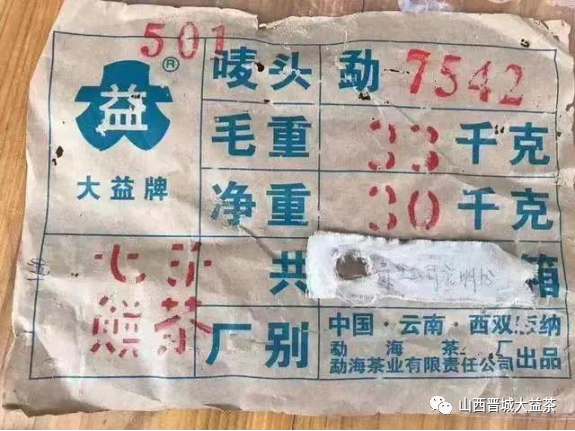 501
®
益
大益牌
唛头 勐 7542
毛重 33 千克
净重 30 千克
七子
饼茶
共 箱
厂别
中国·云南·西双版纳
勐海茶厂
勐海茶业有限责任公司 出品
山西晋城大益茶